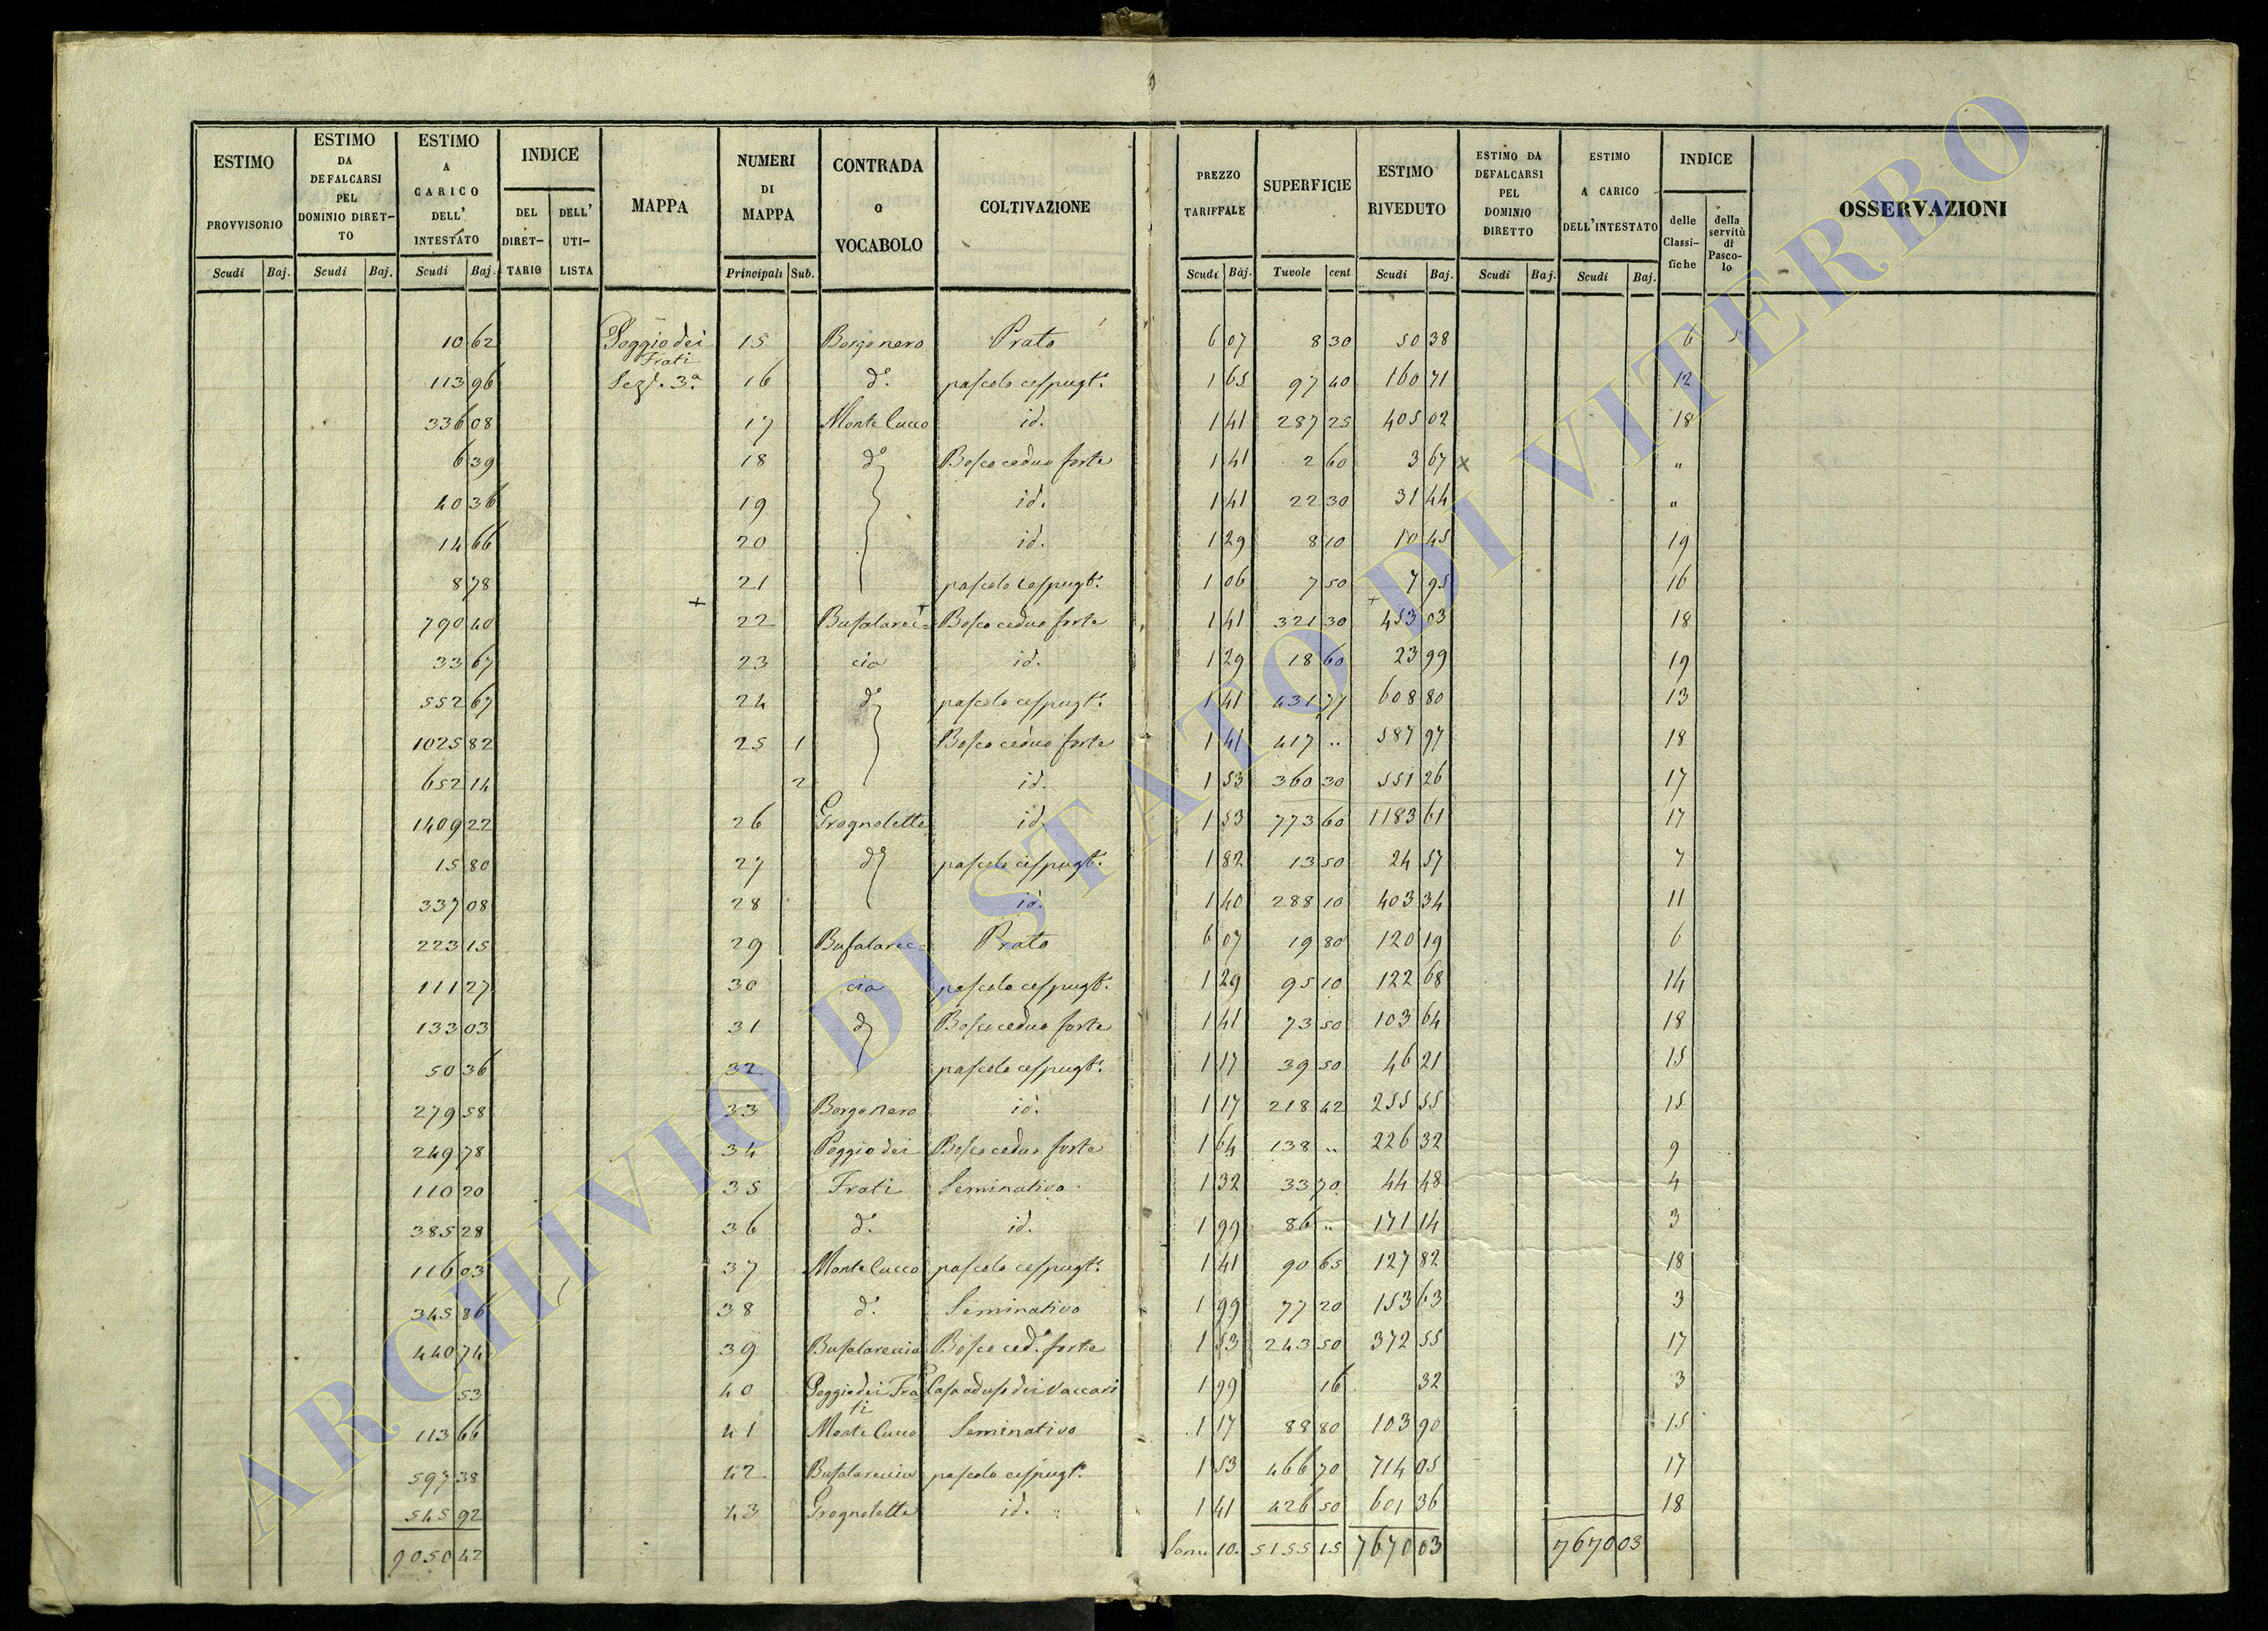 ESTIMO PROVVISORIO Scudi Baj.
ESTIMO DA DEFALCARSI PEL DOMINIO DIRET-TO Scudi Baj.
ESTIMO A CARICO DELL' INTESTATO Scudi Baj.
INDICE DEL DIRET-TARIO DELL' UTI-LISTA
MAPPA
NUMERI DI MAPPA Principali Sub.
CONTRADA o VOCABOLO
COLTIVAZIONE
PREZZO TARIFFALE Scudi Baj.
SUPERFICIE Tavole cent
ESTIMO RIVEDUTO Scudi Baj.
ESTIMO DA DEFALCARSI PEL DOMINIO DIRETTO Scudi Baj.
ESTIMO A CARICO DELL'INTESTATO Scudi Baj.
INDICE delle Classi-fiche della servitù di Pasco-lo
OSSERVAZIONI
10 62 Poggio dei Frati 15 Borgonero Prato 6 07 8 30 50 38 6
113 96 Sez. 3a. 16 do. pascolo cespugto. 1 65 97 40 160 71 12
336 08 17 Monte Cucco id. 1 41 287 25 405 02 18
6 39 18 do Bosco ceduo forte 1 41 2 60 3 67 x "
40 36 19 id. 1 41 22 30 31 44 "
14 66 20 id. 1 29 8 10 10 45 19
8 78 21 pascolo cespugto. 1 06 7 50 7 95 16
790 40 + 22 Bufalarec= + Bosco ceduo forte 1 41 321 30 + 453 03 18
33 67 23 cia id. 1 29 18 60 23 99 19
552 67 24 do pascolo cespugto. 1 41 431 77 608 80 13
1025 82 25 1 Bosco ceduo forte 1 41 417 .. 587 97 18
652 14 2 id. 1 53 360 30 551 26 17
1409 22 26 Grognolette id. 1 53 773 60 1183 61 17
15 80 27 do pascolo cespugto. 1 82 13 50 24 57 7
337 08 28 id. 1 40 288 10 403 34 11
223 15 29 Bufalarec= Prato 6 07 19 80 120 19 6
111 27 30 cia pascolo cespugto. 1 29 95 10 122 68 14
133 03 31 do Bosco ceduo forte 1 41 73 50 103 64 18
50 36 32 pascolo cespugto. 1 17 39 50 46 21 15
279 58 33 Borgonero id. 1 17 218 42 255 55 15
249 78 34 Poggio dei Bosco ceduo forte 1 64 138 .. 226 32 9
110 20 35 Frati Seminativo 1 32 33 70 44 48 4
385 28 36 do. id. 1 99 86 .. 171 14 3
116 03 37 Monte Cucco pascolo cespugto. 1 41 90 65 127 82 18
345 86 38 do. Seminativo 1 99 77 20 153 63 3
440 74 39 Bufalareccia Bosco cedo. forte 1 53 243 50 372 55 17
53 40 Poggio dei Fra=ti Casa ad uso dei Vaccari 1 99 16 32 3
113 66 41 Monte Cucco Seminativo 1 17 88 80 103 90 15
597 38 42 Bufalareccia pascolo cespugto. 1 53 466 70 714 05 17
545 92 43 Grognolette id. 1 41 426 50 601 36 18
9050 42 10. 5155 15 7670 03 7670 03
ARCHIVIO DI STATO DI VITERBO